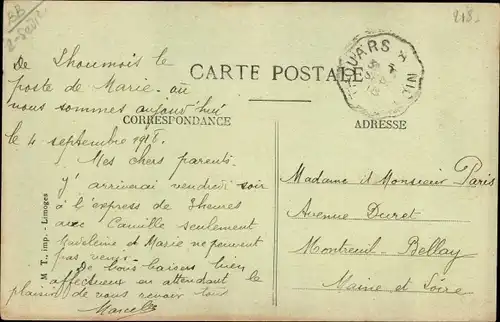 BB
218.
De Thoumois le
poste de Marie. où
nous sommes aujourd'hui
le 4 septembre 1918.
CARTE POSTALE
THOUARS A
CORRESPONDANCE
ADRESSE
Mes chers parents.
J'arriverai vendredi soir
à l'express de 3heures
avec Camille seulement
Madeleine et Marie ne peuvent
pas venir.
De bons baisers bien
affectueux en attendant le
plaisir de vous revoir tous
Marcelle
Madame et Monsieur Paris
Avenue Duret
Montreuil-Bellay
Maine et Loire
M. T., imp. - Limoges